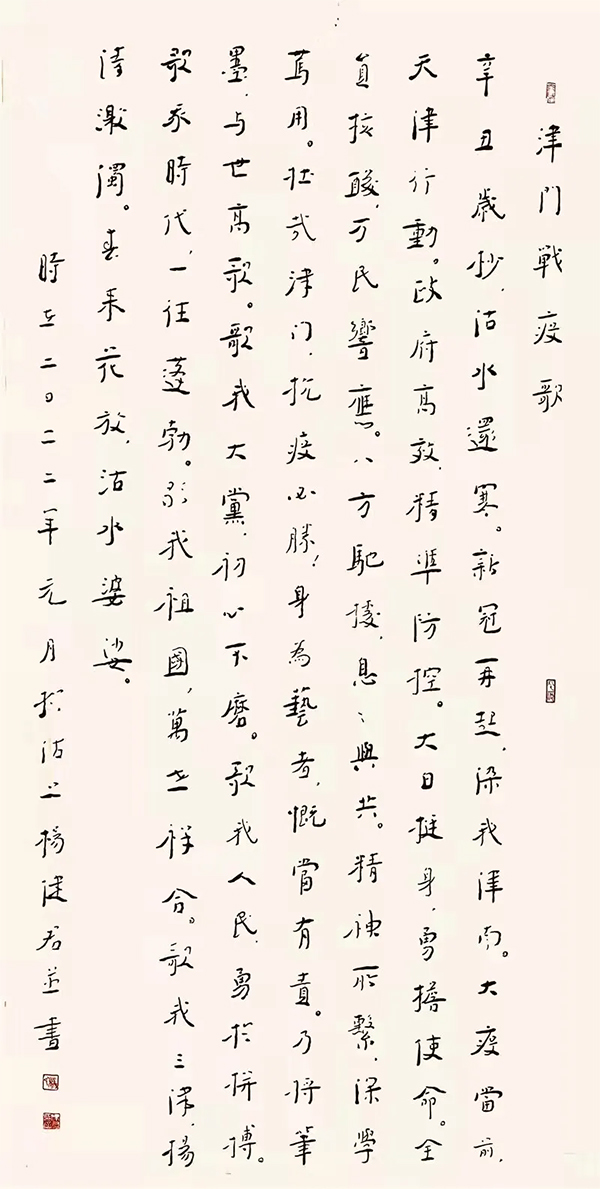 津门戦疫歌
辛丑歲杪，沽水還寒。新冠再起，染我津南。大疫當前，
天津行動。政府高效，精準防控。大白挺身，勇擔使命。全
員核酸，万民響應。八方馳援，息〻與共。精神所繫，深學
篤用。壮哉津门，抗疫必勝！身為藝者，慨當有責。乃将筆
墨，与世高歌。歌我大黨，初心不磨。歌我人民，勇於拼搏。
歌我時代，一任蓬勃。歌我祖國，萬世祥合。歌我三津，揚
清激濁。春来花放，沽水婆娑。
時在二〇二二年元月於沽上楊健君並書